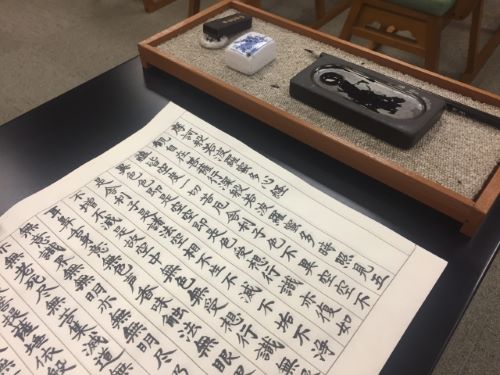 摩訶般若波羅蜜多心経
観自在菩薩行深般若波羅蜜多時照見五
蘊皆空度一切苦厄舎利子色不異空空不
異色色即是空空即是色受想行識亦復如
是舎利子是諸法空相不生不滅不垢不浄
不増不減是故空中無色無受想行識無眼
耳鼻舌身意無色声香味触法無眼
無意識界無無明亦無無明尽乃
無老死尽無苦集滅道
菩提薩埵依般